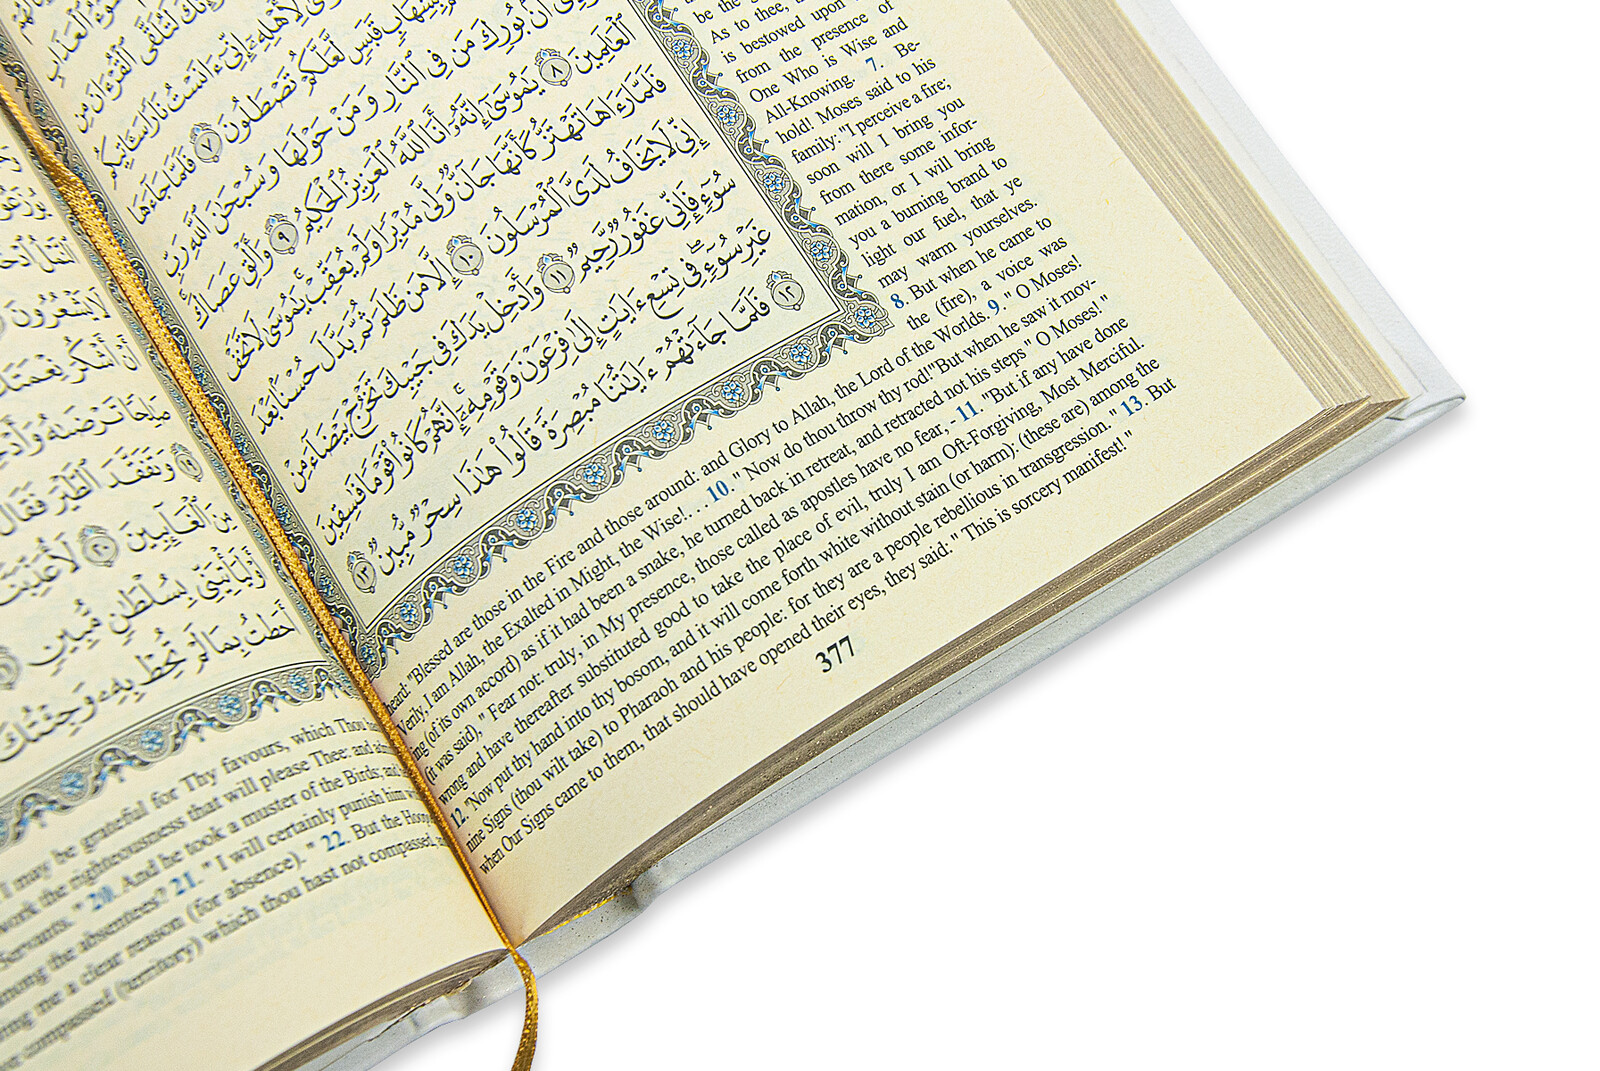 لَّعَلَّكُمْ تَصْطَلُونَ ٧ فَلَمَّا جَآءَهَا
أَنۢ بُورِكَ مَن فِى ٱلنَّارِ وَمَنْ حَوْلَهَا وَسُبْحَٰنَ ٱللَّهِ رَبِّ
ٱلْعَٰلَمِينَ ٨ يَٰمُوسَىٰٓ إِنَّهُۥٓ أَنَا ٱللَّهُ ٱلْعَزِيزُ ٱلْحَكِيمُ ٩ وَأَلْقِ عَصَاكَ
فَلَمَّا رَءَاهَا تَهْتَزُّ كَأَنَّهَا جَآنٌّ وَلَّىٰ مُدْبِرًا وَلَمْ يُعَقِّبْ يَٰمُوسَىٰ لَا تَخَفْ
إِنِّى لَا يَخَافُ لَدَىَّ ٱلْمُرْسَلُونَ ١٠ إِلَّا مَن ظَلَمَ ثُمَّ بَدَّلَ حُسْنًۢا بَعْدَ
سُوٓءٍ فَإِنِّى غَفُورٌ رَّحِيمٌ ١١ وَأَدْخِلْ يَدَكَ فِى جَيْبِكَ تَخْرُجْ بَيْضَآءَ مِنْ
غَيْرِ سُوٓءٍ فِى تِسْعِ ءَايَٰتٍ إِلَىٰ فِرْعَوْنَ وَقَوْمِهِۦٓ إِنَّهُمْ كَانُوا۟ قَوْمًا فَٰسِقِينَ
١٢ فَلَمَّا جَآءَتْهُمْ ءَايَٰتُنَا مُبْصِرَةً قَالُوا۟ هَٰذَا سِحْرٌ مُّبِينٌ ١٣
be the
As to thee,
is bestowed upon
from the presence of
One Who is Wise and
All-Knowing. 7. Be-
hold! Moses said to his
family: "I perceive a fire;
soon will I bring you
from there some infor-
mation, or I will bring
you a burning brand to
light our fuel, that ye
may warm yourselves.
8. But when he came to
the (fire), a voice was
heard: "Blessed are those in the Fire and those around: and Glory to Allah, the Lord of the Worlds. 9. " O Moses!
Verily, I am Allah, the Exalted in Might, the Wise!. . . 10. " Now do thou throw thy rod!"But when he saw it mov-
ing (of its own accord) as if it had been a snake, he turned back in retreat, and retracted not his steps " O Moses! "
(it was said), " Fear not: truly, in My presence, those called as apostles have no fear, - 11. "But if any have done
wrong and have thereafter substituted good to take the place of evil, truly I am Oft-Forgiving, Most Merciful.
12. "Now put thy hand into thy bosom, and it will come forth white without stain (or harm): (these are) among the
nine Signs (thou wilt take) to Pharaoh and his people: for they are a people rebellious in transgression. " 13. But
when Our Signs came to them, that should have opened their eyes, they said: " This is sorcery manifest! "
377
لَا يَشْعُرُونَ
أَنْ أَشْكُرَ نِعْمَتَكَ
وَتَفَقَّدَ ٱلطَّيْرَ فَقَالَ
مِنَ ٱلْغَآئِبِينَ ٢٠
بِسُلْطَٰنٍ مُّبِينٍ
أَحَطتُ بِمَا لَمْ تُحِطْ بِهِۦ وَجِئْتُكَ
I may be grateful for Thy favours, which Thou
work the righteousness that will please Thee: and
Servants. " 20. And he took a muster of the Birds; and
among the absentees? 21. " I will certainly punish him
me a clear reason (for absence). " 22. But the
compassed (territory) which thou hast not compassed,